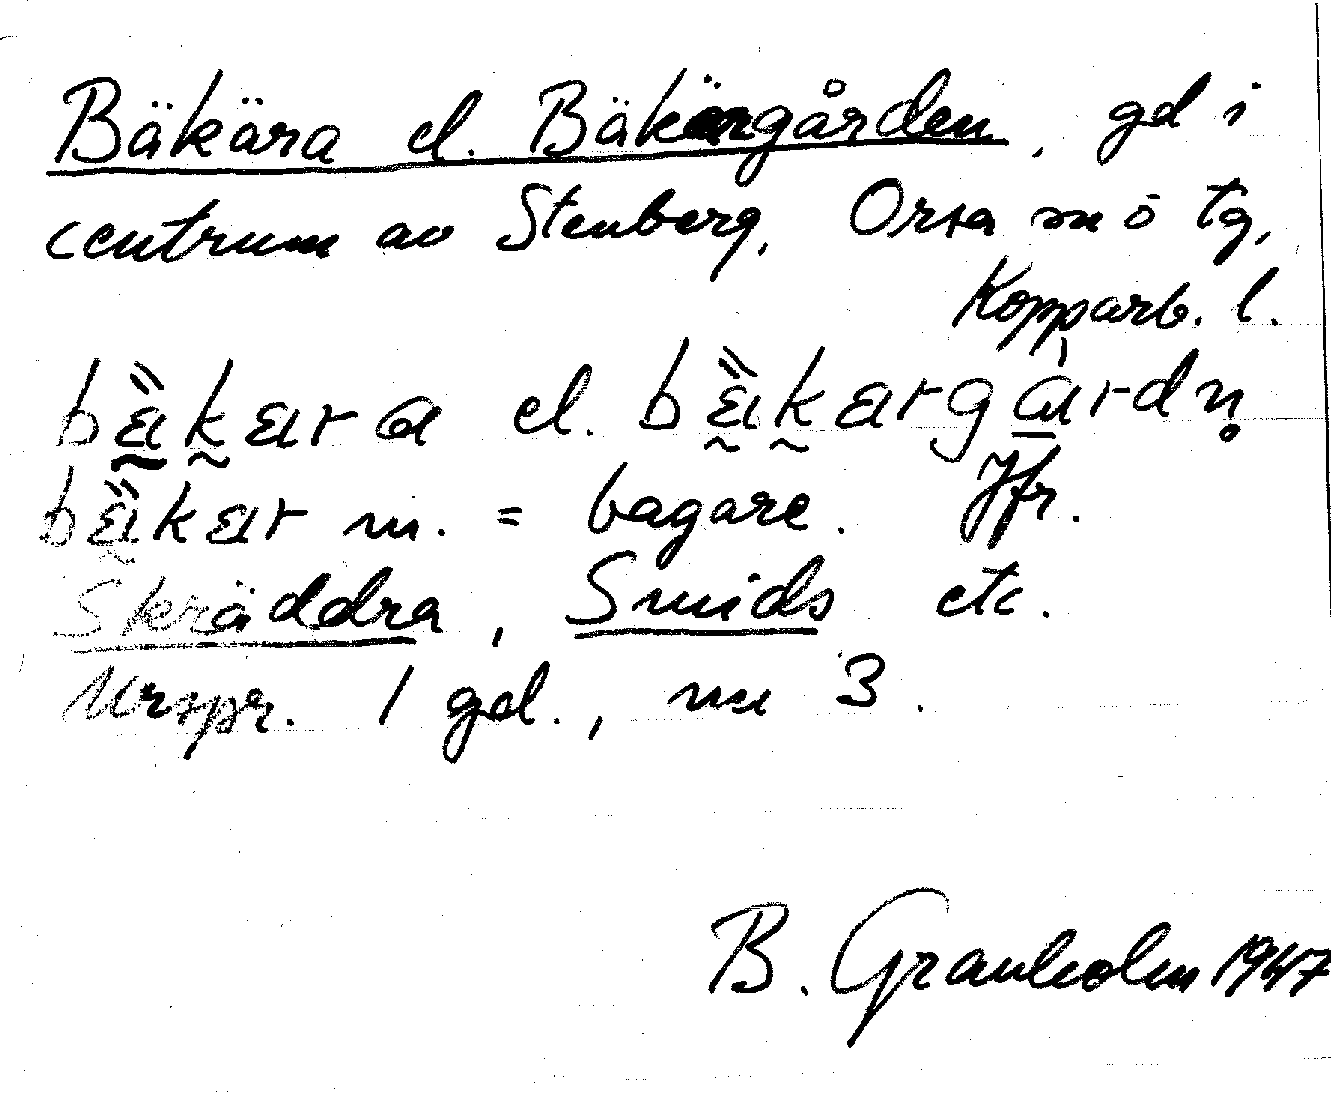 Bäkära el. Bäkärgården, gd i
centrum av Stenberg, Orsa sn ö tg,
Kopparb. l.
bäkära el. bäkärgårdn̥
bäkär m. = bagare. Jfr.
Skräddra, Smids etc.
Urspr. 1 gd., nu 3.
B. Granholm 1947